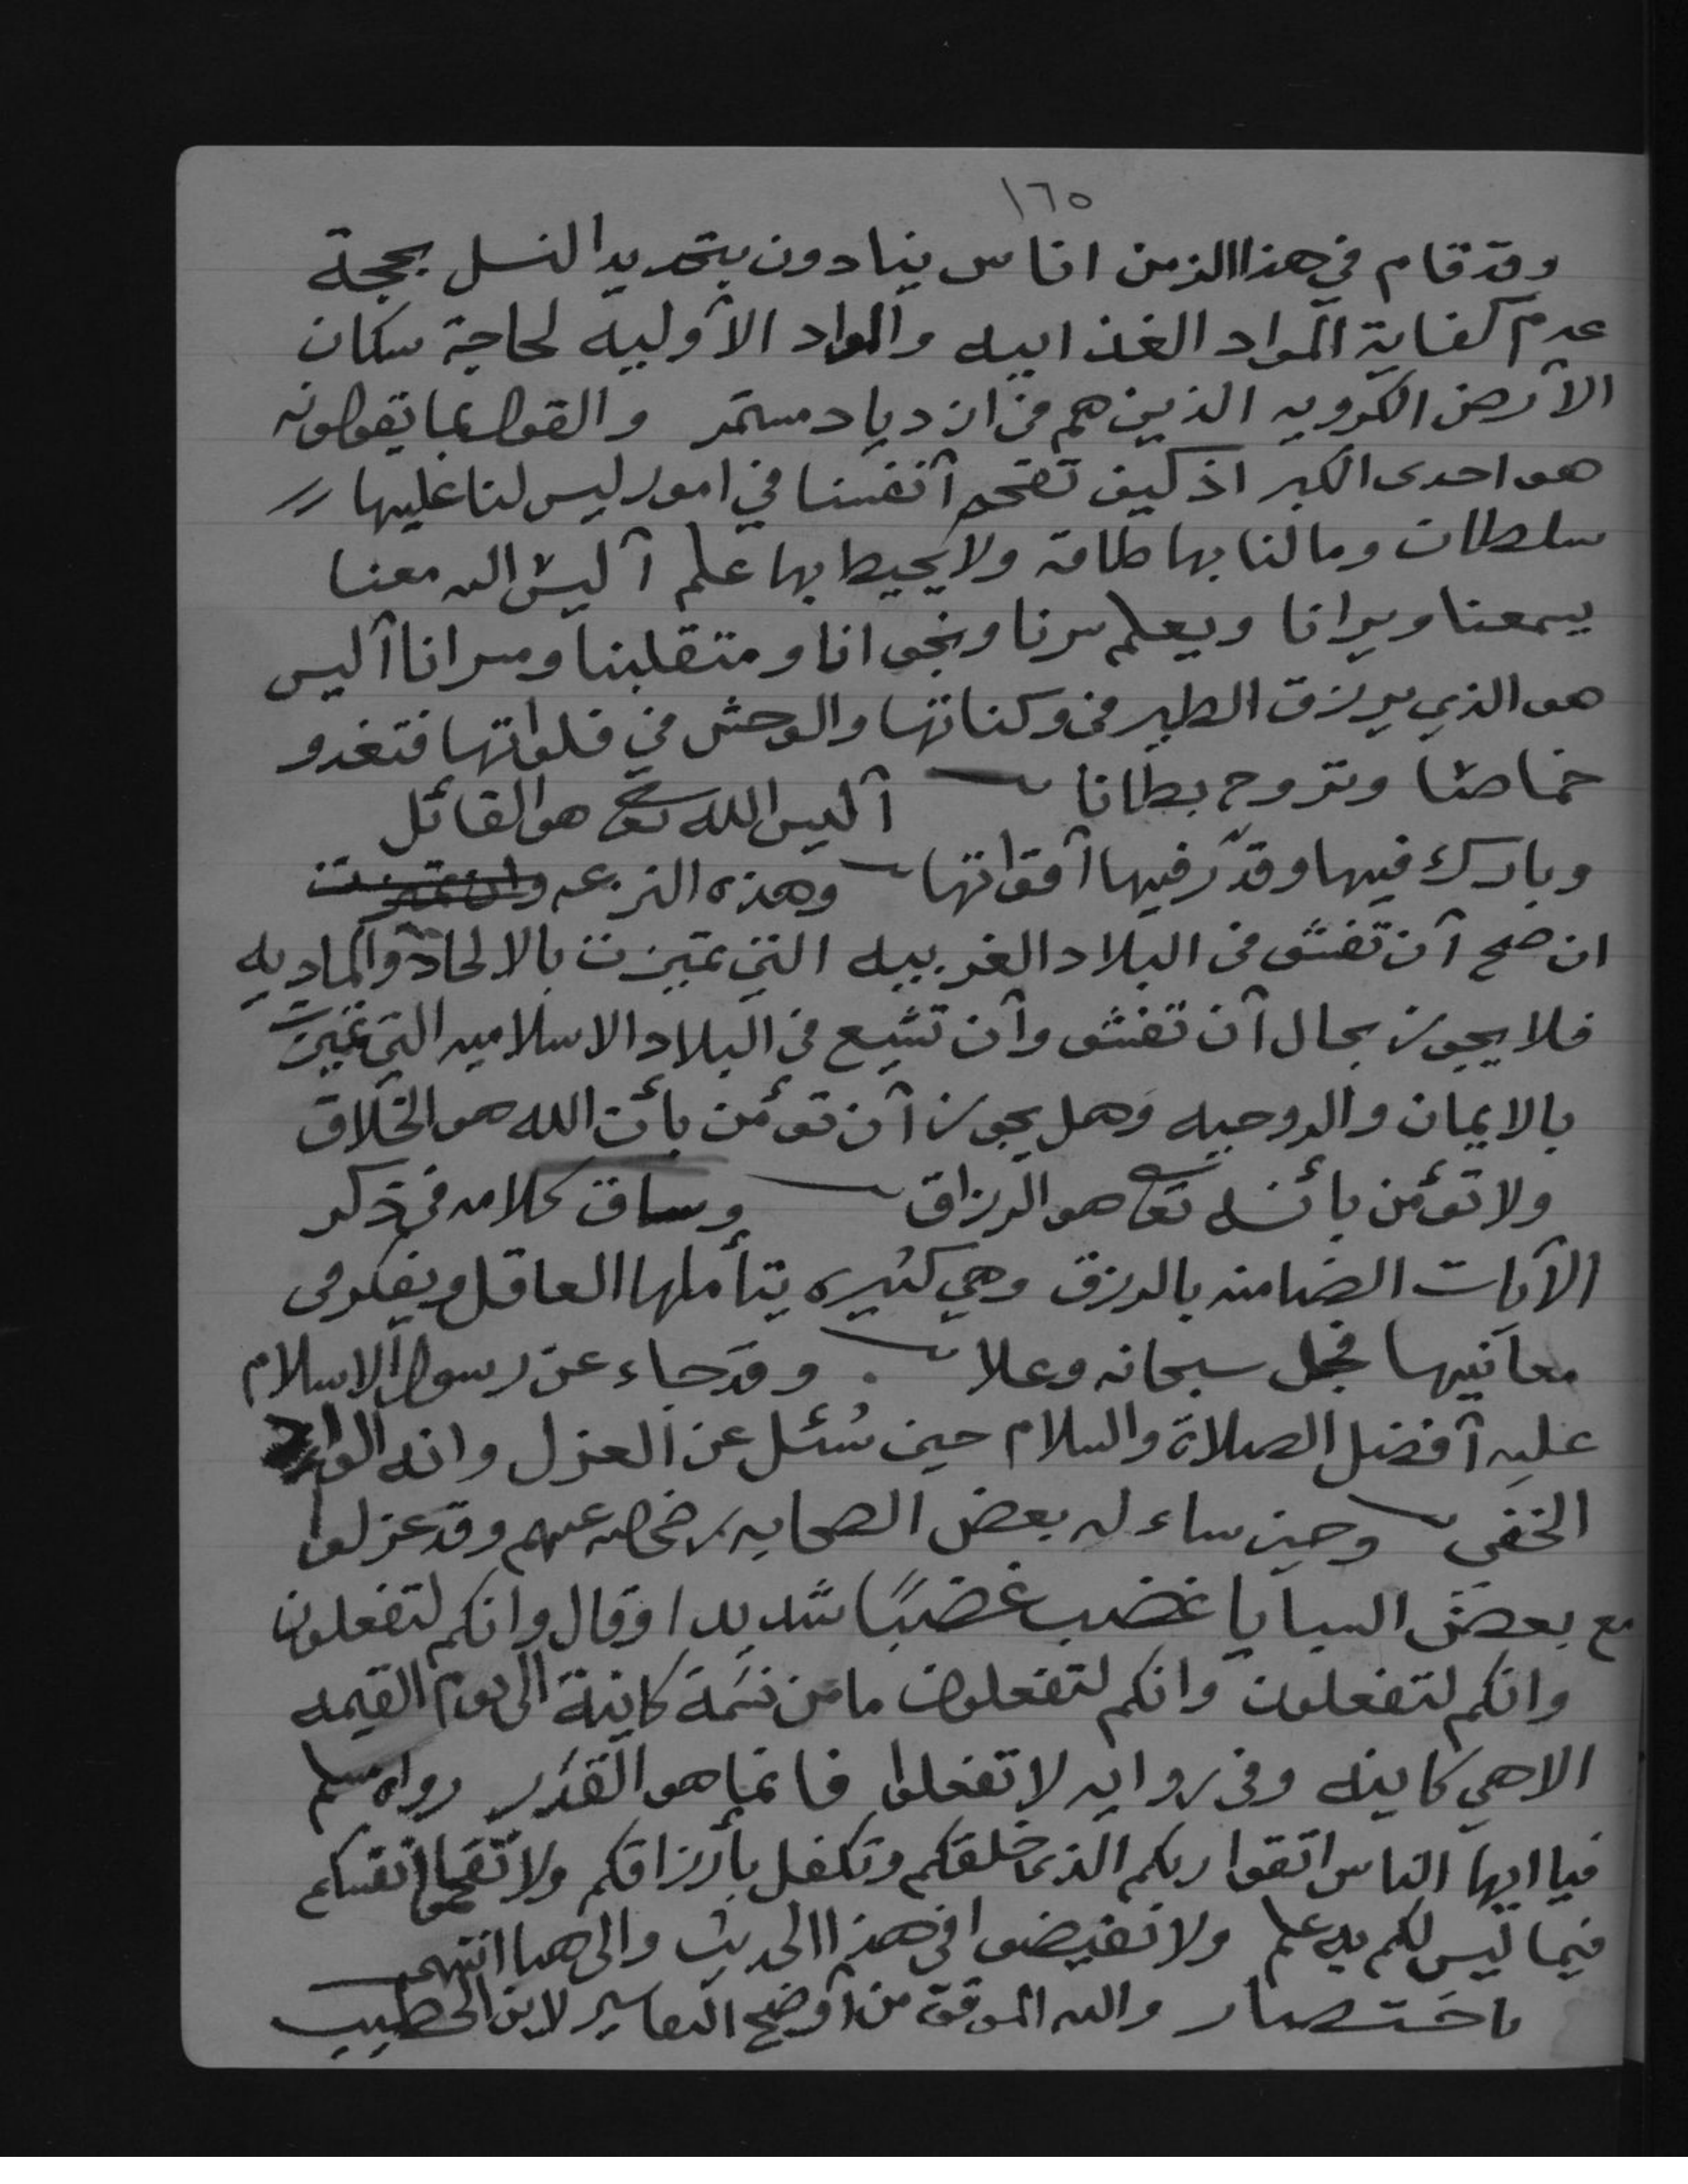 ١٦٥
وقد قام في هذا الزمن اناس ينادون بتحديد النسل بحجة
عدم كفاية المواد الغذاييه والمواد الأوليه لحاجة سكان
الأرض الكرويه الذين هم في ازدياد مستمر والقول بما يقولونه
هو احدى الكبر اذ كيف نقحم أنفسنا في امور ليس لنا عليها
سلطان وما لنا بها طاقة ولا يحيط بها علم أليس الله معنا
يسمعنا ويرانا ويعلم سرنا ونجوانا ومتقلبنا ومسرانا أليس
هو الذي يرزق الطير في وكناتها والوحش في فلواتها فتغدو
خماصا وتروح بطانا أليس الله تعالى هو القائل
وبارك فيها وقدّر فيها أقواتها وهذه النزعه وان تميزت
ان صح أن تفشو في البلاد الغربيه التي تميزت بالالحاد والماديه
فلا يجوز بحال أن تفشو وأن تشيع في البلاد الاسلاميه التي تميزت
بالايمان والروحيه وهل يجوز أن تؤمن بأن الله هو الخلاق
ولا تؤمن بأنه تعالى هو الرزاق وساق كلامه في ذكر
الآيات الضامنه بالرزق وهي كثيره يتأملها العاقل ويفكر في
معانيها فجل سبحانه وعلا . وقد جاء عن رسول الاسلام
عليه أفضل الصلاة والسلام حين سُئل عن العزل وانه الوأد
الخفي وحين ساءله بعض الصحابه رضي الله عنهم وقد عزلوا
مع بعض السبايا غضب غضبًا شديدا وقال وانكم لتفعلون
وانكم لتفعلون وانكم لتفعلون ما من نسَمة كاينة الى يوم القيمه
الا هي كاينه وفي روايه لا تفعلوا فانما هو القدر رواه مسلم
فيا ايها الناس اتقوا ربكم الذي خلقكم وتكفل بأرزاقكم ولا تقحموا انفسكم
فيما ليس لكم به علم ولا تفيضوا في هذا الحديث والى هنا انتهى
باختصار والله الموفق من أوضح التفاسير لابن الخطيب